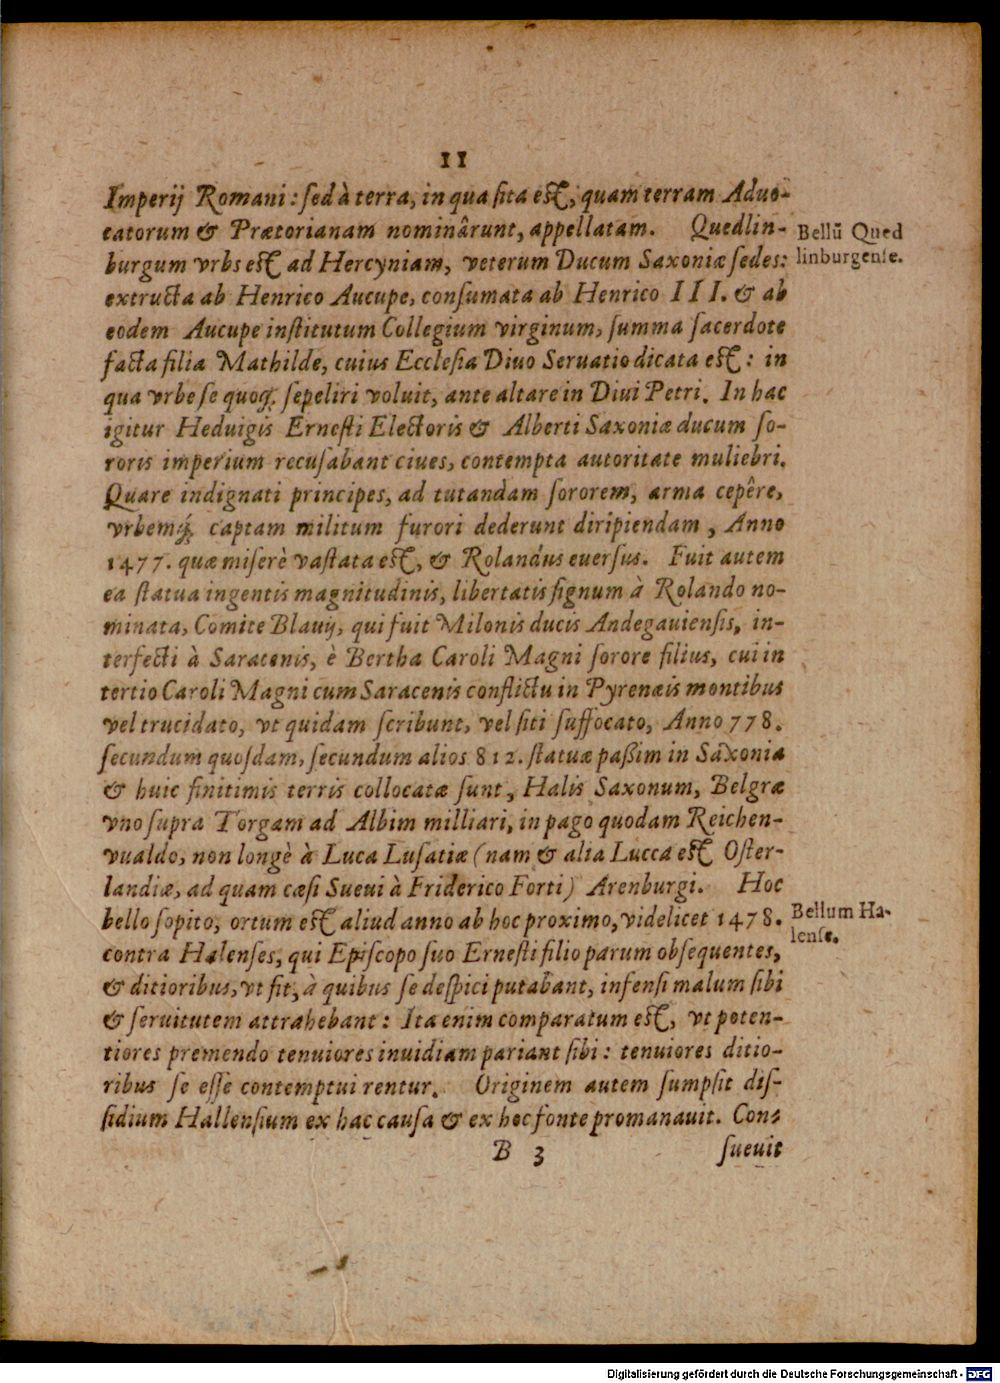 11
Imperij Romani: sed à terra, in qua sita est, quam terram Aduo-
catorum & Prætorianam nominârunt, appellatam. Quedlin-
Bellū Qued
burgum vrbs est ad Hercyniam, veterum Ducum Saxoniæ sedes:
linburgense.
extructa ab Henrico Aucupe, consumata ab Henrico III. & ab
eodem Aucupe institutum Collegium virginum, summa sacerdote
facta filia Mathilde, cuius Ecclesia Diuo Seruatio dicata est: in
qua vrbe se quoq; sepeliri voluit, ante altare in Diui Petri. In hac
igitur Heduigis Ernesti Electoris & Alberti Saxoniæ ducum so-
roris imperium recusabant ciues, contempta autoritate muliebri.
Quare indignati principes, ad tutandam sororem, arma cepêre,
vrbemq́; captam militum furori dederunt diripiendam, Anno
1477. quæ miserè vastata est, & Rolandus euersus. Fuit autem
ea statua ingentis magnitudinis, libertatis signum à Rolando no-
minata, Comite Blauij, qui fuit Milonis ducis Andegauiensis, in-
terfecti à Saracenis, è Bertha Caroli Magni sorore filius, cui in
tertio Caroli Magni cum Saracenis conflictu in Pyrenæis montibus
vel trucidato, vt quidam scribunt, vel siti suffocato, Anno 778.
secundum quosdam, secundum alios 812. statuæ paßim in Saxonia
& huic finitimis terris collocatæ sunt, Halis Saxonum, Belgræ
vno supra Torgam ad Albim milliari, in pago quodam Reichen-
vualdo, non longè à Luca Lusatiæ (nam & alia Lucca est Oster-
landiæ, ad quam cæsi Sueui à Friderico Forti) Arenburgi. Hoc
bello sopito, ortum est aliud anno ab hoc proximo, videlicet 1478.
Bellum Ha-
contra Halenses, qui Episcopo suo Ernesti filio parum obsequentes,
lense.
& ditioribus, vt fit, à quibus se despici putabant, infensi malum sibi
& seruitutem attrahebant: Ita enim comparatum est, vt poten-
tiores premendo tenuiores inuidiam pariant sibi: tenuiores ditio-
ribus se esse contemptui rentur. Originem autem sumpsit dis-
sidium Hallensium ex hac causa & ex hoc fonte promanauit. Con-
B 3
sueuit
Digitalisierung gefördert durch die Deutsche Forschungsgemeinschaft - DFG